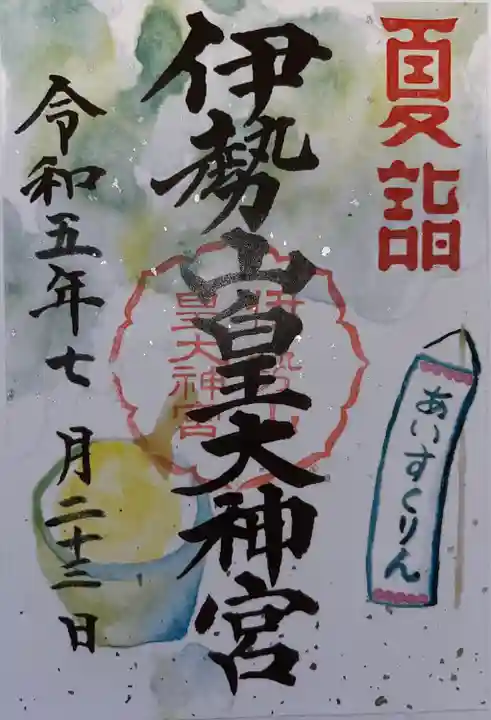 夏詣
あいすくりん
伊勢山皇大神宮
伊勢山
皇大神宮
令和五年七月二十三日